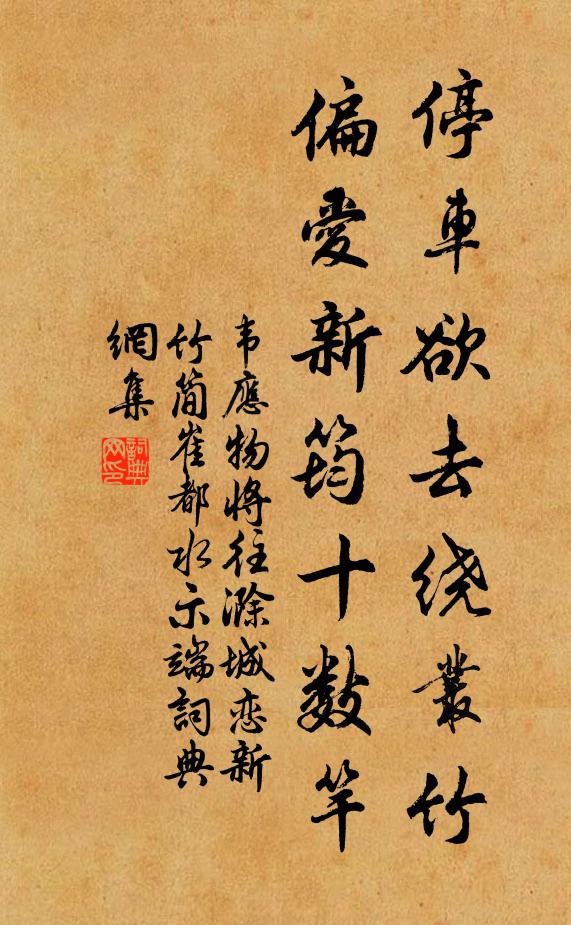 停車欲去绕叢竹
偏愛新筠十數竿
韦應物將往滁城恋新
竹简崔都水示端詞典
網集
詞典
网印